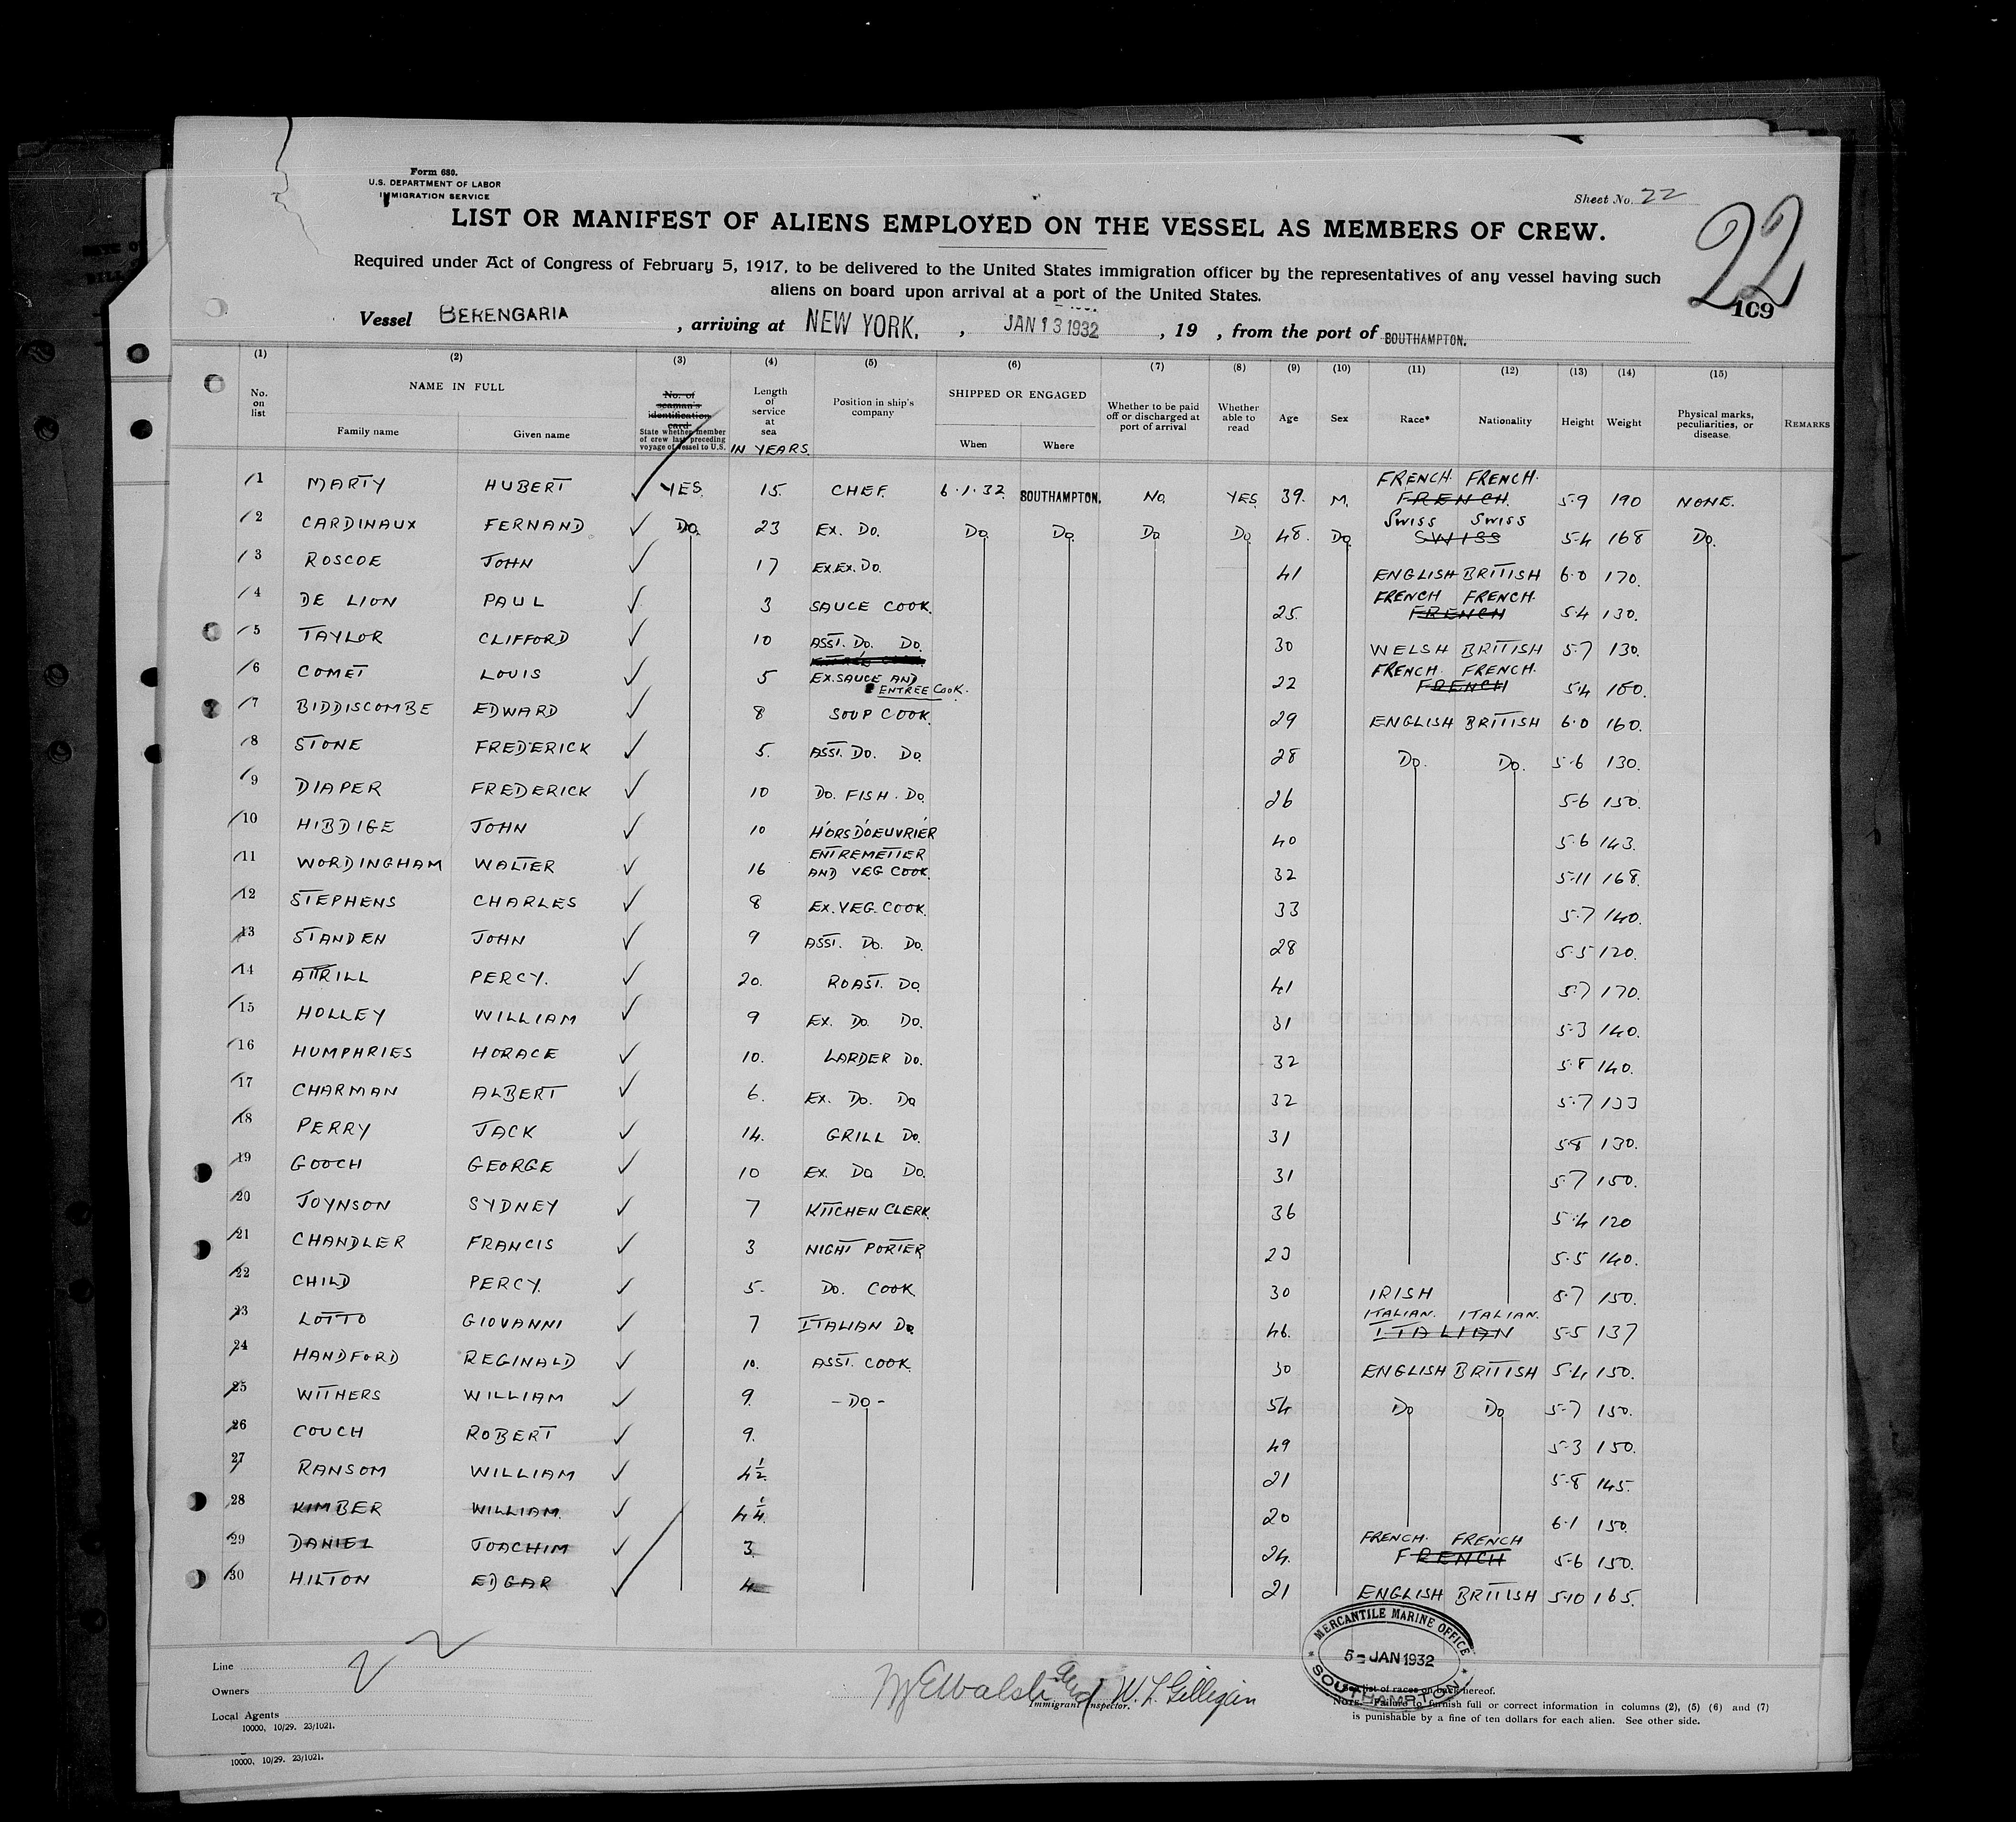 Form 680.
U.S. DEPARTMENT OF LABOR
IMMIGRATION SERVICE
Sheet No. 22
LIST OR MANIFEST OF ALIENS EMPLOYED ON THE VESSEL AS MEMBERS OF CREW.
22
Required under Act of Congress of February 5, 1917, to be delivered to the United States immigration officer by the representatives of any vessel having such
aliens on board upon arrival at a port of the United States.
109
Vessel BERENGARIA , arriving at NEW YORK. , JAN 13 1932 , 19 , from the port of SOUTHAMPTON.
(1) (2) (3) (4) (5) (6) (7) (8) (9) (10) (11) (12) (13) (14) (15)
No. on list NAME IN FULL Family name Given name No. of seaman's identification card State whether member of crew last preceding voyage of vessel to U.S. Length of service at sea IN YEARS. Position in ship's company SHIPPED OR ENGAGED When Where Whether to be paid off or discharged at port of arrival Whether able to read Age Sex Race* Nationality Height Weight Physical marks, peculiarities, or disease REMARKS
1 MARTY HUBERT YES. 15. CHEF. 6.1.32. SOUTHAMPTON. No. YES 39. M. FRENCH. FRENCH. FRENCH. 5-9 190 NONE.
2 CARDINAUX FERNAND Do. 23 EX. Do. Do. Do. Do Do 48. Do. SWISS SWISS SWISS 5-4 168 Do.
3 ROSCOE JOHN 17 EX.EX. Do. 41 ENGLISH BRITISH 6-0 170.
4 DE LION PAUL 3 SAUCE COOK. 25. FRENCH FRENCH. FRENCH 5-4 130.
5 TAYLOR CLIFFORD 10 ASST. Do. Do. 30 WELSH BRITISH 5-7 130.
6 COMET LOUIS 5 EX. SAUCE AND ENTREE COOK. 22 FRENCH. FRENCH. FRENCH 5-4 160.
7 BIDDISCOMBE EDWARD 8 SOUP COOK. 29 ENGLISH BRITISH 6-0 160.
8 STONE FREDERICK 5. ASST. Do. Do. 28 Do. Do. 5-6 130.
9 DIAPER FREDERICK 10 Do. FISH. Do. 26 5-6 150.
10 HIBDIGE JOHN 10 HORS D'OEUVRIER 40 5-6 143.
11 WORDINGHAM WALTER 16 ENTREMETIER AND VEG COOK. 32 5-11 168.
12 STEPHENS CHARLES 8 EX. VEG. COOK. 33 5-7 140.
13 STANDEN JOHN 9 ASST. Do. Do. 28 5-5 120.
14 ATTRILL PERCY. 20. ROAST. Do. 41 5-7 170.
15 HOLLEY WILLIAM 9 EX. Do. Do. 31 5-3 140.
16 HUMPHRIES HORACE 10. LARDER Do. 32 5-8 140.
17 CHARMAN ALBERT 6. EX. Do. Do 32 5-7 133
18 PERRY JACK 14. GRILL Do. 31 5-8 130.
19 GOOCH GEORGE 10 EX. Do Do. 31 5-7 150.
20 JOYNSON SYDNEY 7 KITCHEN CLERK. 36 5-4 120
21 CHANDLER FRANCIS 3 NIGHT PORTER 23 5-5 140.
22 CHILD PERCY. 5. Do. COOK. 30 IRISH 5-7 150.
23 LOTTO GIOVANNI 7 ITALIAN Do. 46. ITALIAN. ITALIAN. ITALIAN 5-5 137
24 HANDFORD REGINALD 10. ASST. COOK. 30 ENGLISH BRITISH 5-4 150.
25 WITHERS WILLIAM 9. -DO- 54 Do Do 5-7 150.
26 COUCH ROBERT 9. 49 5-3 150.
27 RANSOM WILLIAM 4½ 21 5-8 145.
28 KIMBER WILLIAM. 4¼ 20 6-1 150.
29 DANIEL JOACHIM 3. 24. FRENCH. FRENCH FRENCH 5-6 150.
30 HILTON EDGAR 4 21 ENGLISH BRITISH 5-10 165.
22
MERCANTILE MARINE OFFICE
5 - JAN 1932
SOUTHAMPTON
Line
Owners
Local Agents
10000, 10/29. 23/1021.
W. L. Gilligan
Immigrant Inspector.
See list of races on back hereof.
NOTE.—Failure to furnish full or correct information in columns (2), (5) (6) and (7)
is punishable by a fine of ten dollars for each alien. See other side.
10000, 10/29. 23/1021.